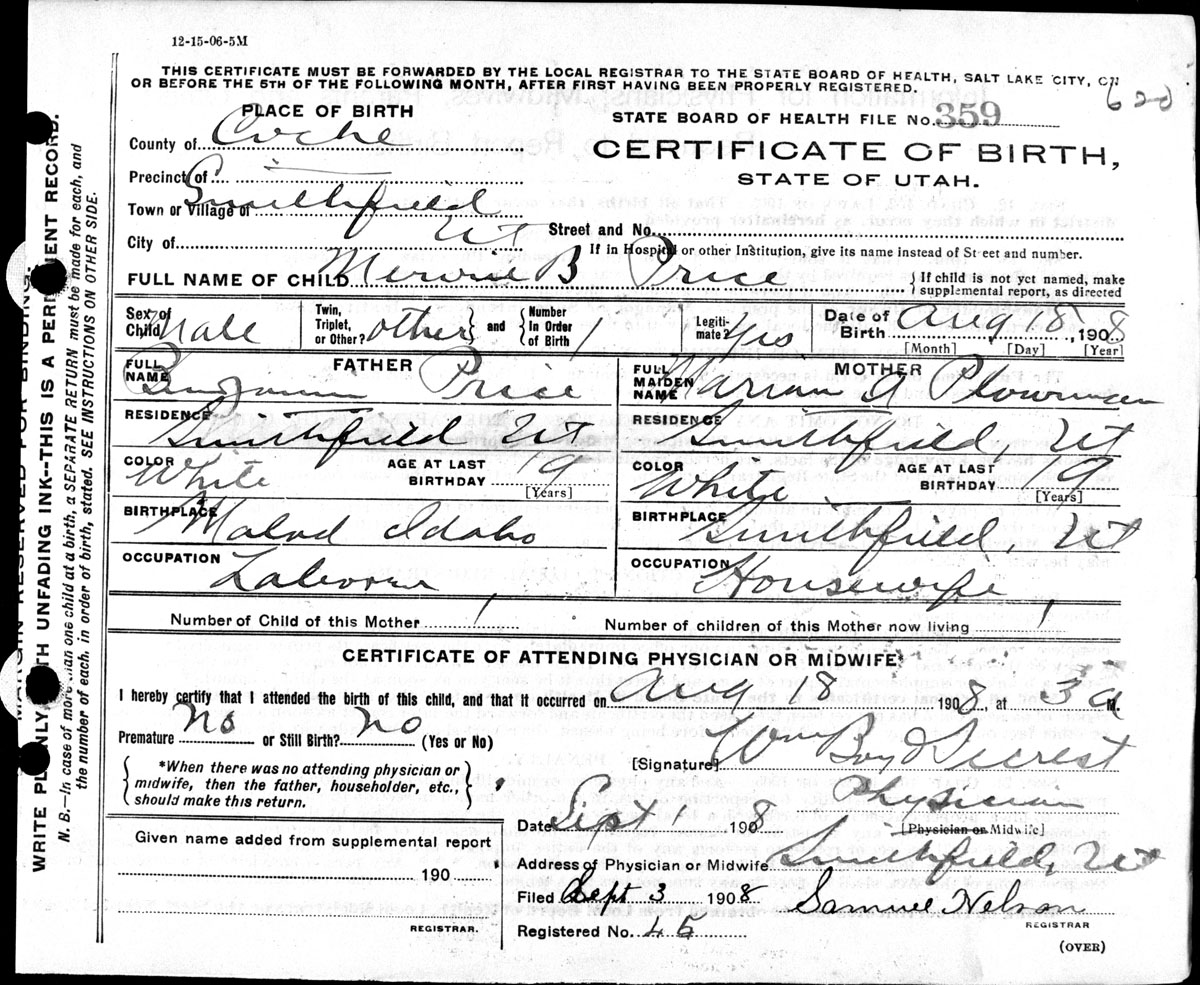 12-15-06-5M
THIS CERTIFICATE MUST BE FORWARDED BY THE LOCAL REGISTRAR TO THE STATE BOARD OF HEALTH, SALT LAKE CITY, ON
OR BEFORE THE 5TH OF THE FOLLOWING MONTH, AFTER FIRST HAVING BEEN PROPERLY REGISTERED.
PLACE OF BIRTH
STATE BOARD OF HEALTH FILE No. 359
County of Cache
CERTIFICATE OF BIRTH,
STATE OF UTAH.
Precinct of
Town or Village of Smithfield
City of Ut
Street and No.
If in Hospital or other Institution, give its name instead of Street and number.
FULL NAME OF CHILD B Price
If child is not yet named, make
supplemental report, as directed
Sex of Child Male
Twin, Triplet, or Other? other and Number In Order of Birth 1
Legitimate? Yes
Date of Birth Aug 18, 1908
[Month] [Day] [Year]
FATHER
FULL NAME Benjamin Price
MOTHER
FULL MAIDEN NAME A Plowman
RESIDENCE Smithfield Ut
RESIDENCE Smithfield, Ut
COLOR White AGE AT LAST BIRTHDAY 19
[Years]
COLOR White AGE AT LAST BIRTHDAY 19
[Years]
BIRTHPLACE Malad Idaho
BIRTHPLACE Smithfield, Ut
OCCUPATION Laborer
OCCUPATION Housewife
Number of Child of this Mother 1
Number of children of this Mother now living 1
CERTIFICATE OF ATTENDING PHYSICIAN OR MIDWIFE
I hereby certify that I attended the birth of this child, and that it occurred on Aug 18 1908, at 3 a M.
Premature No or Still Birth? No (Yes or No)
*When there was no attending physician or
midwife, then the father, householder, etc.,
should make this return.
[Signature] Wm
Physician
[Physician or Midwife]
Date Sept 1 1908
Address of Physician or Midwife Smithfield, Ut
Filed Sept 3 1908 Samuel Nelson
REGISTRAR
Registered No. 45
(OVER)
Given name added from supplemental report
190
REGISTRAR.
MARGIN RESERVED FOR BINDING.
WRITE PLAINLY WITH UNFADING INK--THIS IS A PERMANENT RECORD.
N. B.—In case of more than one child at a birth, a SEPARATE RETURN must be made for each, and
the number of each, in order of birth, stated. SEE INSTRUCTIONS ON OTHER SIDE.